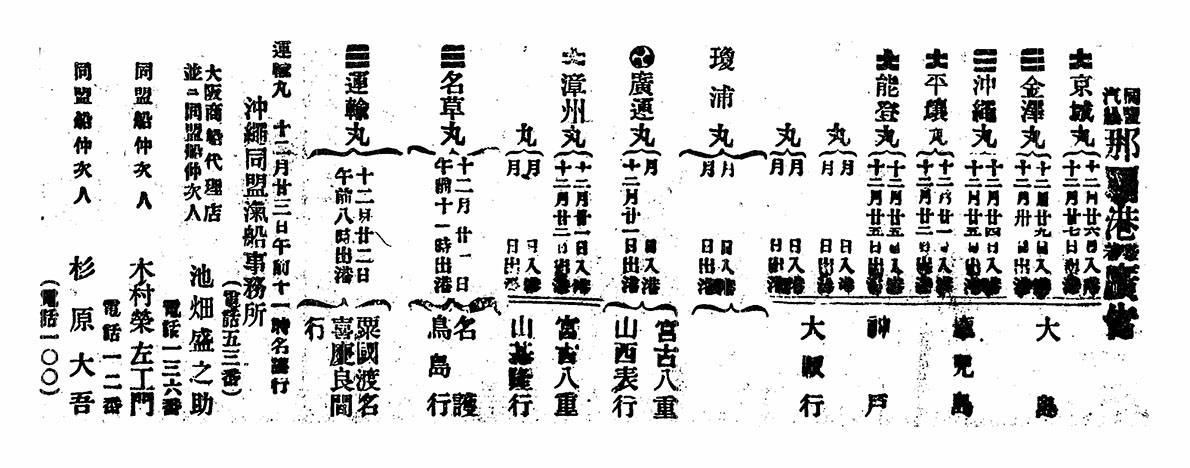 同盟汽船那覇港發着廣告
京城丸 十二月廿六日入港 十二月廿七日出港
金澤丸 十二月廿九日入港 十二月卅日出港
沖繩丸 十二月廿四日入港 十二月廿五日出港
平壤丸
能登丸 十二月廿五日出港
丸 月 日入港 月 日出港
丸 月 日入港 月 日出港
大島
鹿兒島
神戸
大阪行
瓊浦丸 月 日入港 月 日出港
廣運丸 月 日入港 十二月廿一日出港
宮古八重山西表行
漳州丸 十二月廿一日入港 十二月廿二日出港
丸 月 日入港 月 日出港
宮古八重山基隆行
名草丸 十二月廿一日午前十一時出港
名護鳥島行
運輸丸 十二月廿二日午前八時出港
粟國渡名喜慶良間行
運輸丸 十二月廿三日午前十一時名護行
沖繩同盟滊船事務所
(電話五三番)
大阪商船代理店
並ニ同盟船仲次人 池畑盛之助
電話一三六番
同盟船仲次人 木村榮左工門
電話一二番
同盟船仲次人 杉原大吾
(電話一〇〇)